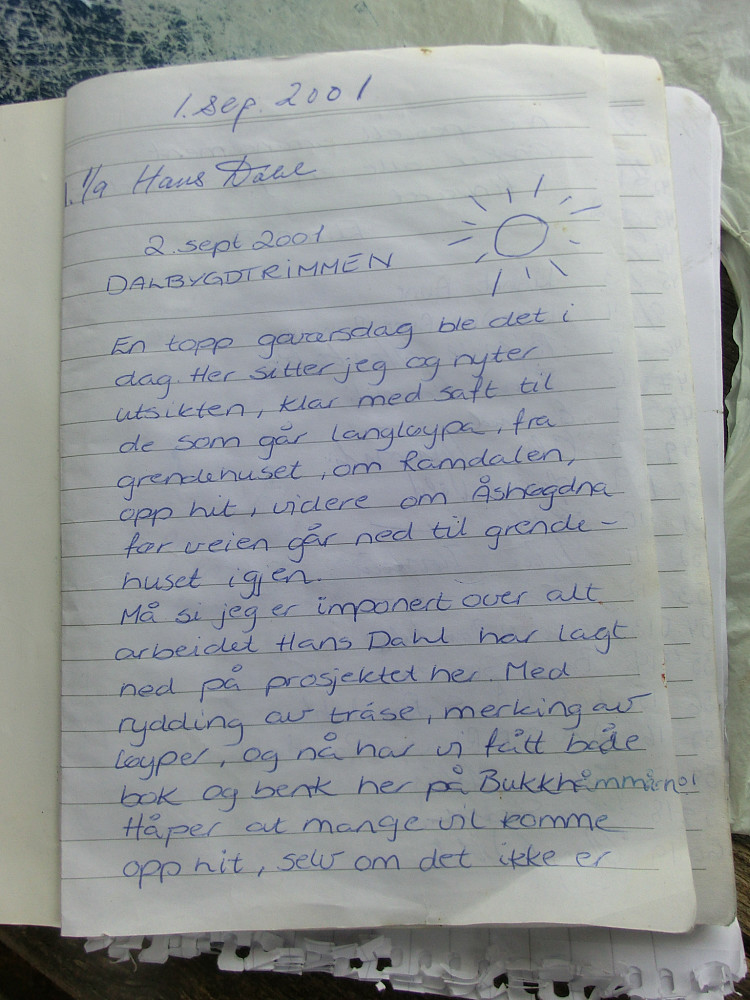 1. sep. 2001
1. 1/9 Hans Dahl
2. sept 2001
DALBYGDTRIMMEN
En topp gaversdag ble det i
dag. Her sitter jeg og nyter
utsikten, klar med saft til
de som går langløypa, fra
grendehuset, om Ramdalen,
opp hit, videre om Åshogdna
før veien går ned til grende-
huset igjen.
Må si jeg er imponert over alt
arbeidet Hans Dahl har lagt
ned på prosjektet her. Med
rydding av tráse, merking av
løyper, og nå har vi fått både
bok og benk her på
Håper at mange vil komme
opp hit, selv om det ikke er